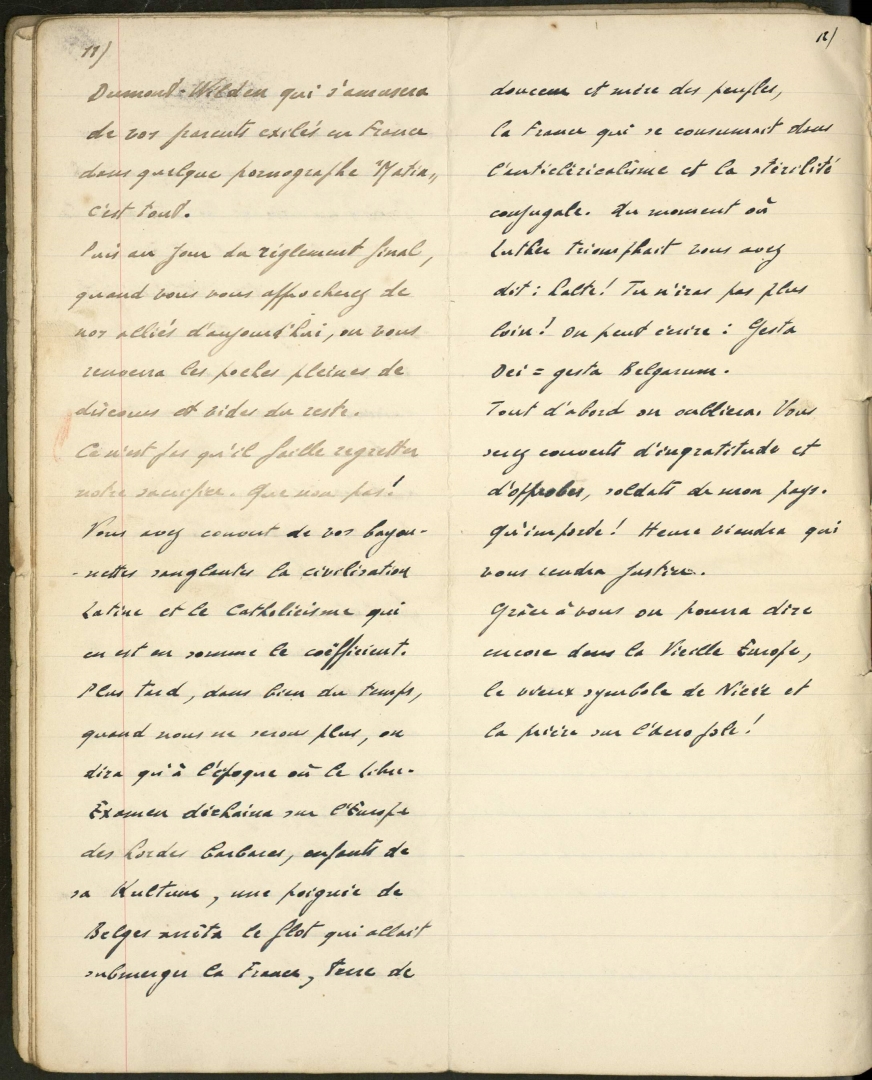 11/
Dumont-Wilden qui s'amusera
de vos parents exilés en France
dans quelque pornographe "Matin"
c'est tout.
Puis au jour du règlement final,
quand vous vous approcherez de
nos alliés d'aujourd'hui, on vous
renverra les poches pleines de
discours et vides du reste.
Ce n'est pas qu'il faille regretter
notre sacrifice. Que non pas!
Vous avez couvert de vos bayon-
-nettes sanglantes la civilisation
Latine et le Catholicisme qui
en est en somme le coëfficient.
Plus tard, dans bien du temps,
quand nous ne serons plus, on
dira qu'à l'époque où le libre-
Examen déchaina sur l'Europe
des hordes barbares, enfants de
sa Kulture, une poignée de
Belges arrêta le flot qui allait
submerger la France, terre de
12/
douceur et mère des peuples,
la France qui se consumait dans
l'anticléricalisme et la stérilité
conjugale. Au moment où
Luther triomphait vous avez
dit: halte! Tu n'iras pas plus
loin! On peut écrire: Gesta
Dei = gesta Belgarum.
Tout d'abord on oubliera. Vous
serez couverts d'ingratitude et
d'opprobes, soldats de mon pays.
Qu'importe! Heure viendra qui
vous rendra justice.
Grâce à vous on pourra dire
encore dans la Vieille Europe,
le vieux symbole de Nicée et
la prière sur l'Acropole!